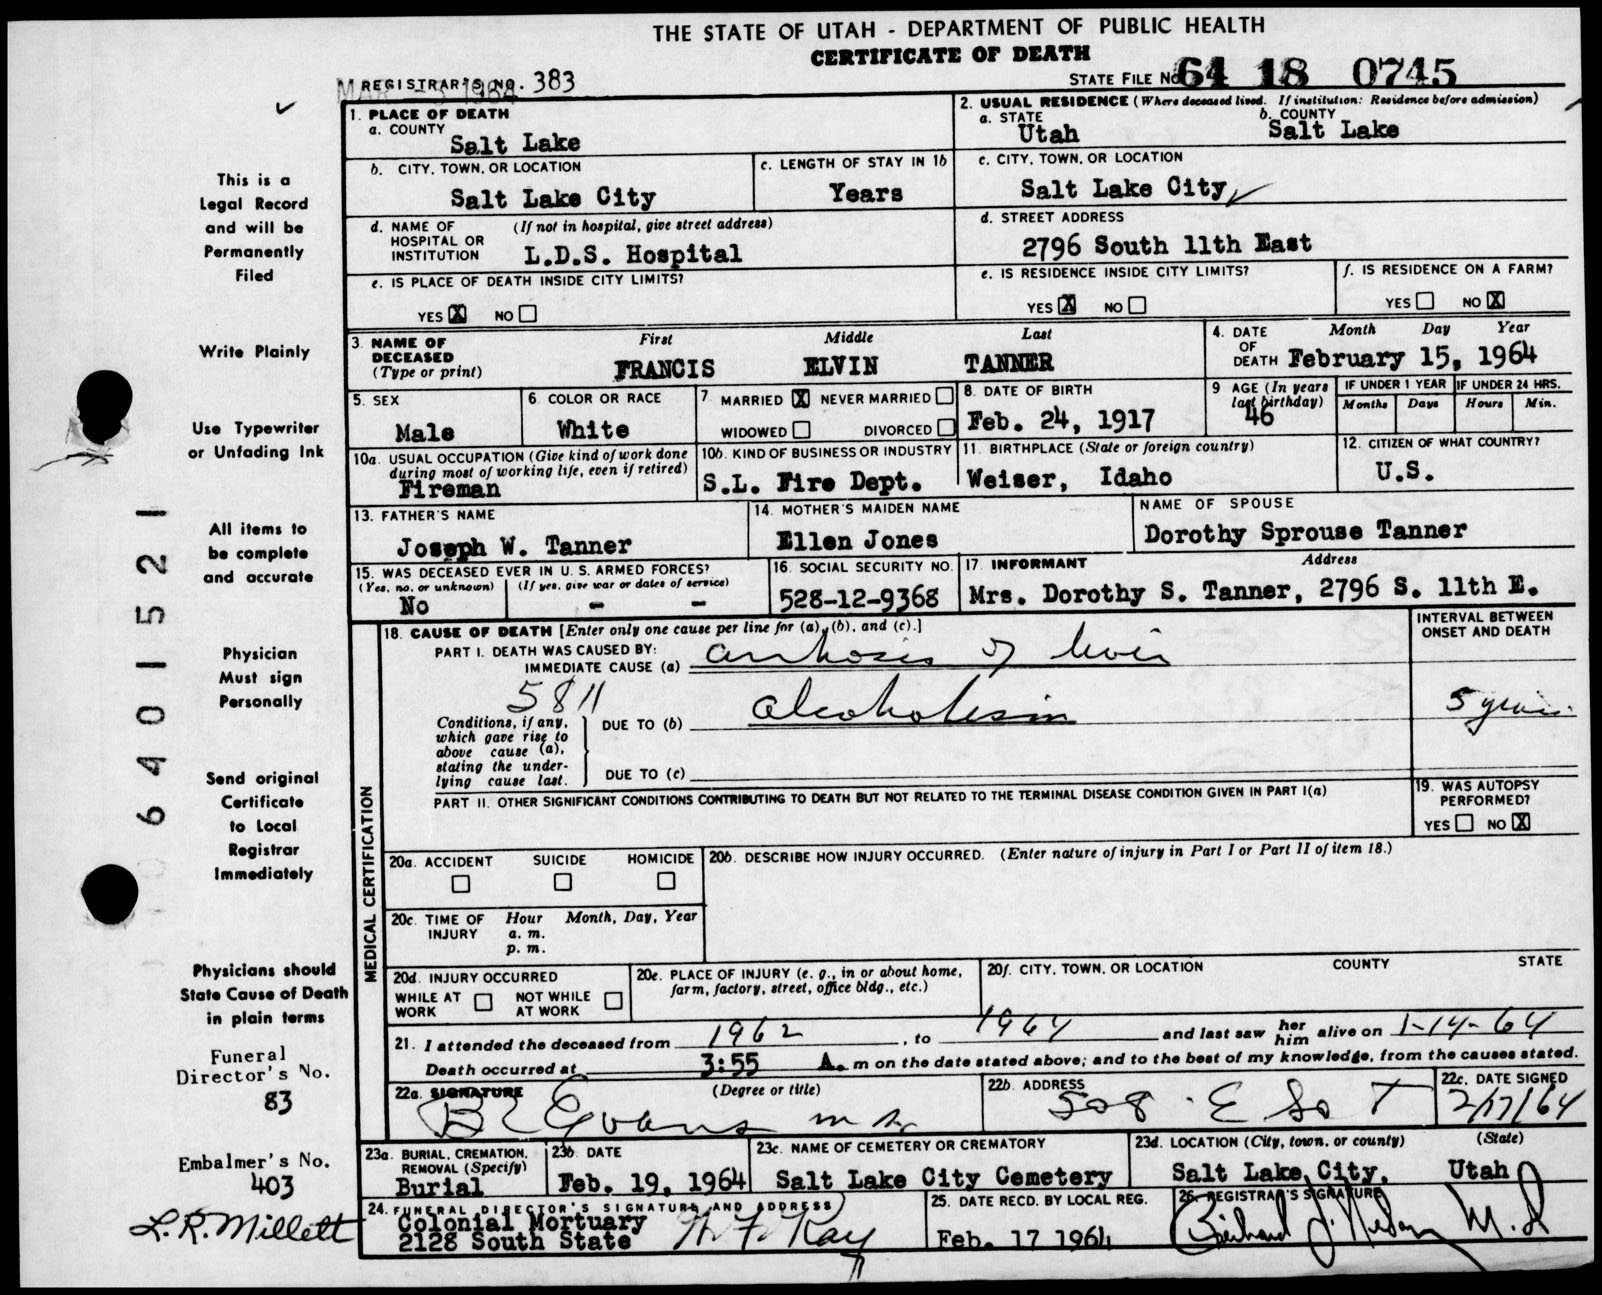 THE STATE OF UTAH - DEPARTMENT OF PUBLIC HEALTH
CERTIFICATE OF DEATH
REGISTRAR'S NO. 383
STATE FILE No 64 18 0745
1. PLACE OF DEATH
a. COUNTY
Salt Lake
2. USUAL RESIDENCE (Where deceased lived. If institution: Residence before admission)
a. STATE
Utah
b. COUNTY
Salt Lake
b. CITY, TOWN, OR LOCATION
Salt Lake City
c. LENGTH OF STAY IN 1b
Years
c. CITY, TOWN, OR LOCATION
Salt Lake City
d. NAME OF HOSPITAL OR INSTITUTION
(If not in hospital, give street address)
L.D.S. Hospital
d. STREET ADDRESS
2796 South 11th East
e. IS PLACE OF DEATH INSIDE CITY LIMITS?
YES X NO
e. IS RESIDENCE INSIDE CITY LIMITS?
YES X NO
f. IS RESIDENCE ON A FARM?
YES NO X
3. NAME OF DECEASED
(Type or print)
First Middle Last
FRANCIS ELVIN TANNER
4. DATE OF DEATH
Month Day Year
February 15, 1964
5. SEX
Male
6. COLOR OR RACE
White
7. MARRIED X NEVER MARRIED
WIDOWED DIVORCED
8. DATE OF BIRTH
Feb. 24, 1917
9 AGE (In years last birthday)
46
IF UNDER 1 YEAR
Months Days
IF UNDER 24 HRS.
Hours Min.
10a. USUAL OCCUPATION (Give kind of work done during most of working life, even if retired)
Fireman
10b. KIND OF BUSINESS OR INDUSTRY
S.L. Fire Dept.
11. BIRTHPLACE (State or foreign country)
Weiser, Idaho
12. CITIZEN OF WHAT COUNTRY?
U.S.
13. FATHER'S NAME
Joseph W. Tanner
14. MOTHER'S MAIDEN NAME
Ellen Jones
NAME OF SPOUSE
Dorothy Sprouse Tanner
15. WAS DECEASED EVER IN U. S. ARMED FORCES?
(Yes, no, or unknown) (If yes, give war or dates of service)
No - -
16. SOCIAL SECURITY NO.
528-12-9368
17. INFORMANT Address
Mrs. Dorothy S. Tanner, 2796 S. 11th E.
MEDICAL CERTIFICATION
18. CAUSE OF DEATH [Enter only one cause per line for (a), (b), and (c).]
INTERVAL BETWEEN ONSET AND DEATH
PART I. DEATH WAS CAUSED BY:
IMMEDIATE CAUSE (a) cirrhosis of liver
5811
Conditions, if any, which gave rise to above cause (a), stating the underlying cause last.
DUE TO (b) alcoholism
5 years
DUE TO (c)
PART II. OTHER SIGNIFICANT CONDITIONS CONTRIBUTING TO DEATH BUT NOT RELATED TO THE TERMINAL DISEASE CONDITION GIVEN IN PART I(a)
19. WAS AUTOPSY PERFORMED?
YES NO X
20a. ACCIDENT SUICIDE HOMICIDE
20b. DESCRIBE HOW INJURY OCCURRED. (Enter nature of injury in Part I or Part II of item 18.)
20c. TIME OF INJURY
Hour Month, Day, Year
a. m.
p. m.
20d. INJURY OCCURRED
WHILE AT WORK NOT WHILE AT WORK
20e. PLACE OF INJURY (e. g., in or about home, farm, factory, street, office bldg., etc.)
20f. CITY, TOWN, OR LOCATION COUNTY STATE
21. I attended the deceased from 1962, to 1964 and last saw her him alive on 1-14-64
Death occurred at 3:55 A. m on the date stated above; and to the best of my knowledge, from the causes stated.
22a. SIGNATURE (Degree or title)
B E Evans M D
22b. ADDRESS
508 E So T
22c. DATE SIGNED
2/17/64
23a. BURIAL, CREMATION, REMOVAL (Specify)
Burial
23b DATE
Feb. 19, 1964
23c. NAME OF CEMETERY OR CREMATORY
Salt Lake City Cemetery
23d. LOCATION (City, town, or county) (State)
Salt Lake City, Utah
24. FUNERAL DIRECTOR'S SIGNATURE AND ADDRESS
Colonial Mortuary
2128 South State
25. DATE RECD. BY LOCAL REG.
Feb. 17 1964
26. REGISTRAR'S SIGNATURE
M.D
This is a
Legal Record
and will be
Permanently
Filed
Write Plainly
Use Typewriter
or Unfading Ink
All items to
be complete
and accurate
Physician
Must sign
Personally
Send original
Certificate
to Local
Registrar
Immediately
Physicians should
State Cause of Death
in plain terms
Funeral
Director's No.
83
Embalmer's No.
403
L.R. Millett
6401521